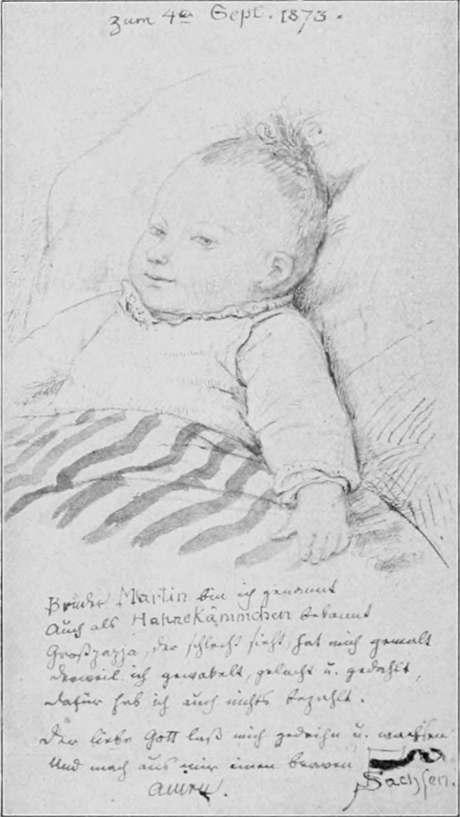 zum 4ten Sept. 1873.
Bruder Martin bin ich genannt
Auch als Hahnekämmchen bekannt
Großpappa, der schlecht sieht, hat mich gemalt
Derweil ich gewakelt, gelacht u. gedahlt,
dafür hab ich auch nichts bezahlt.
Der liebe Gott laß mich gedeihn u. wachsen
Und mach aus mir einen braven
Sachsen.
Amen.